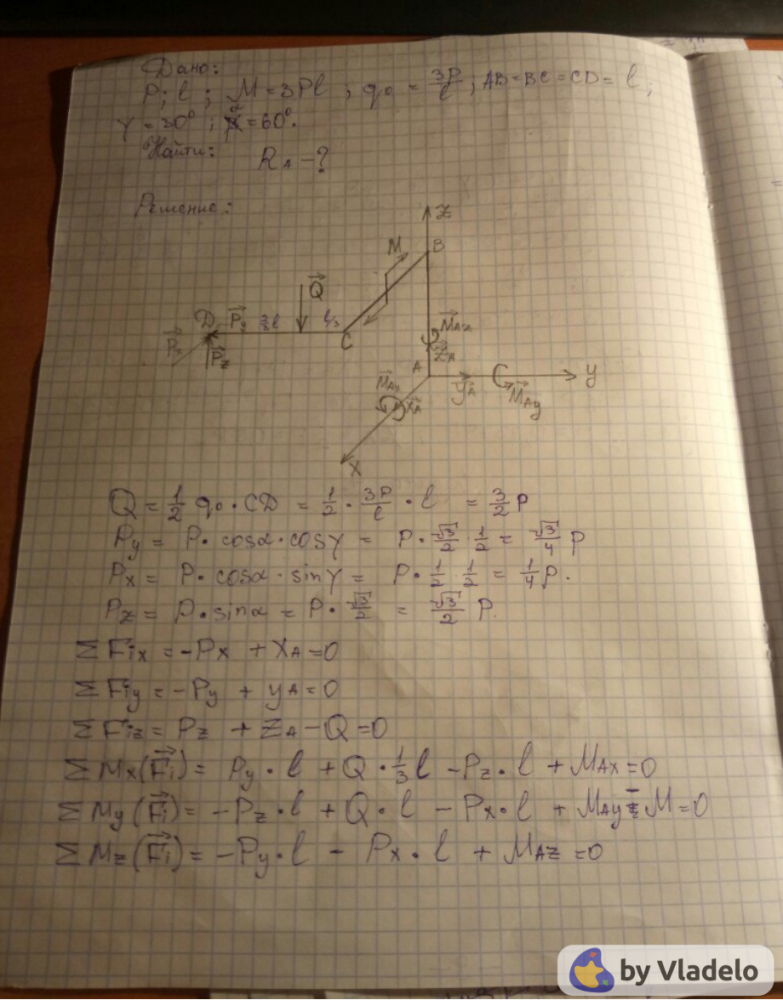 Дано:
P; l; M = 3Pl; q₀ = 3P/l; AB=BC=CD=l;
γ = 30°; α = 60°.
Найти: R_A - ?
Решение:
z
B
M
Q⃗
D
P⃗z
l/3
C
M⃗Az
Z⃗A
A
Y⃗A
M⃗Ay
y
M⃗Ax
X⃗A
x
Q = 1/2 q₀ · CD = 1/2 · 3P/l · l = 3/2 P
Py = P · cosα · cosγ = P · √3/2 · 1/2 = √3/4 P
Px = P · cosα · sinγ = P · 1/2 · 1/2 = 1/4 P.
Pz = P · sinα = P · √3/2 = √3/2 P.
Σ Fix = -Px + XA = 0
Σ Fiy = -Py + YA = 0
Σ Fiz = Pz + ZA - Q = 0
Σ Mx(F⃗i) = Py · l + Q · 1/3 l - Pz · l + MAx = 0
Σ My(F⃗i) = -Pz · l + Q · l - Px · l + MAy - M = 0
Σ Mz(F⃗i) = -Py · l - Px · l + MAz = 0
by Vladelo